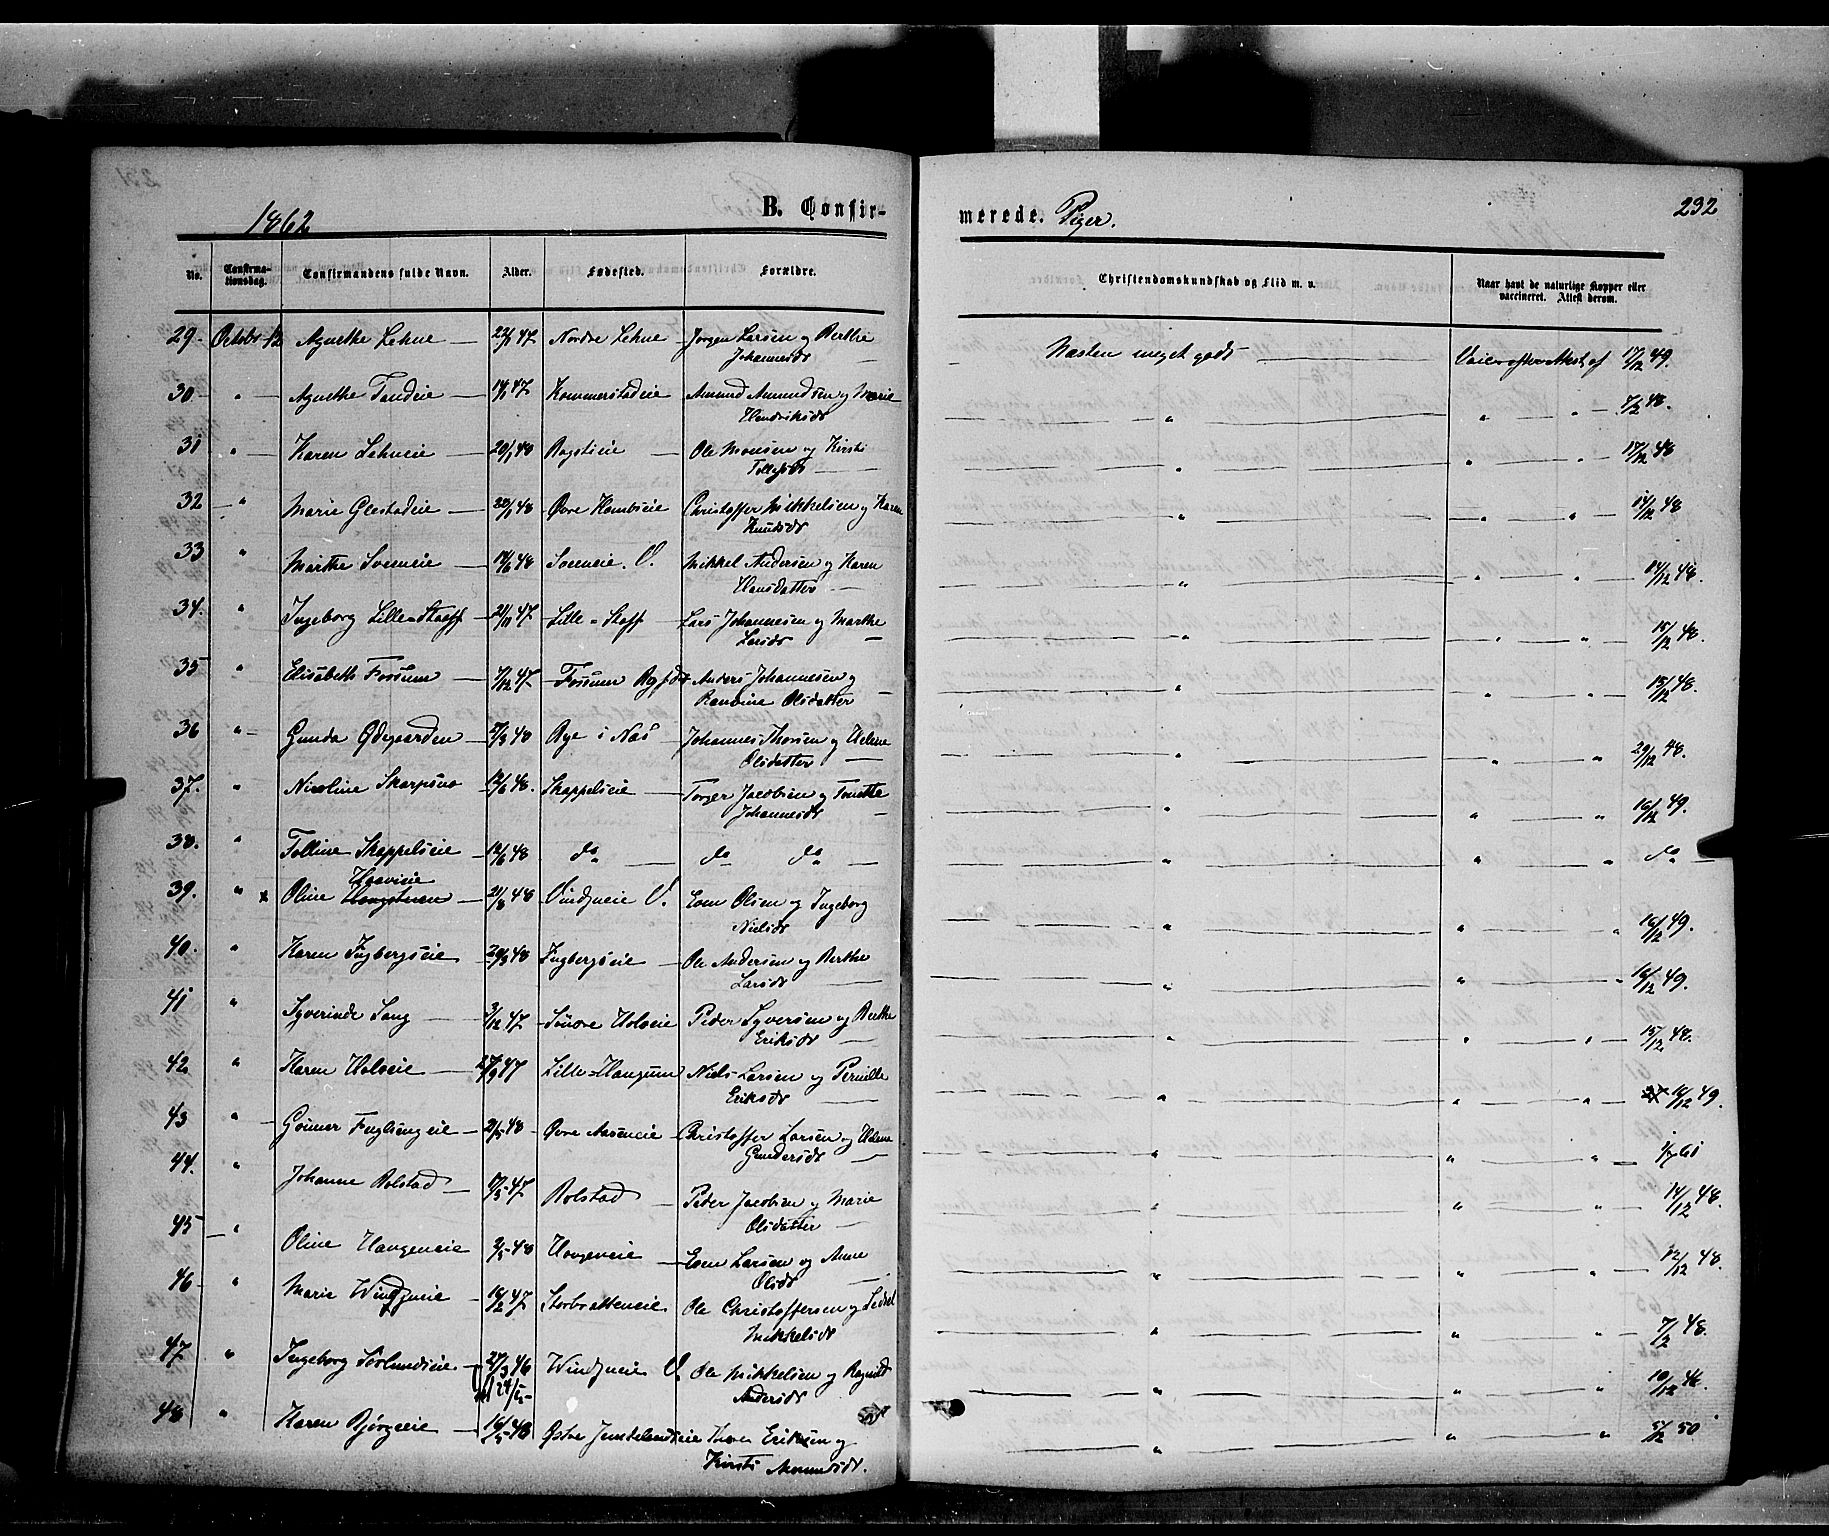 1862
B. Confir-
merede. Piger.
232
No.
Confirma-
tionsdag.
Confirmandens fulde Navn.
Alder.
Fødested.
Forældre.
Christendomskundskab og Flid m. v.
Naar havt de naturlige Kopper eller
vaccineret. Attest derom.
29. Octobr 12 Agnethe Lehne 22/7 47 Nordre Lehne Jørgen Larsen og Berthe
Johannesdr
Næsten meget godt Vacc. efter Attest af 17/12 49.
30 " Agnethe Tandeie 14/1 47 Kommerstadeie Amund Amundsen og Marie
Hendriksdr
" " " 7/2 48.
31 " Karen Lehneie 20/1 48 Rogstieie Ole Monsen og Kirsti
Tollefsdr
" " " 17/12 48
32 " Marie Glestadeie 22/1 48 Øvre Hembseie Christoffer Mikkelsen og Karen
Knudsdr
" " " 14/12 48
33 " Marthe Soeneie 14/6 48 Soeneie. V. Mikkel Andersen og Karen
Hansdatter
" " " 14/12 48.
34. " Ingeborg Lille-Staff 21/11 47 Lille-Staff Lars Johannesen og Marthe
Larsdr
" " " 15/12 48.
35 " Elisabeth Fossum 7/12 47 Fossum Anders Johannesen og
Randine Olsdatter
" " " 15/12 48.
36 " Gunda Ødegaarden 2/3 48 Rye i Næs Johannes Thorsen og Helene
Olsdatter
" " " 29/12 48.
37. " Nicoline Skarpsno 12/6 48. Skappelseie Torger Jacobsen og Tonette
Johannesdr
" " " 16/12 49.
38. " Tolline Skappelseie 12/6 48 do do do
" " " do
Haavieie
39. " x Oline 21/8 48 Vindjueie V. Even Olsen og Ingeborg
Nielsdr
" " " 16/12 49.
40. " Karen Fugbergseie 29/3 48 Fugbergseie Ole Andersen og Berthe
Larsdr
" " " 16/12 49.
41 " Syverinde Sang 3/12 47 Søndre Holseie Peder Syversen og Berthe
Eriksdr
" " " 15/12 48.
42 " Karen Holseie 27/9 47 Lille-Haugum Niels Larsen og Pernille
Eriksdr
" " " 16/12 49.
43 " Guniver Fuglsengeie 2/5 48 Øvre Aaseneie Christoffer Larsen og Helene
Gundersdr
" " " 1/7 61
44. " Johanne Rolstad 8/5 47 Rolstad Peder Jacobsen og Marie
Olsdatter
" " 14/12 48.
45 " Oline Haugeneie 2/5 48 Haugeneie Even Larsen og Anne
Olsdr
" " " 12/12 48.
46 " Marie Windjueie 16/2 47 Storbratteneie Ole Christoffersen og Sidsel
Mikkelsdr
" " " 7/2 48.
47 " Ingeborg Sørlundseie 27/3 46 Windjueie V. Ole Mikkelsen og Ragnild
Andersdr
" " " 10/12 46
48 " Karen Bjørgeeie 16/5 48 Østre Jemtelandseie Iver Eriksen og
Kirsti Amundsdr.
" " " 5/12 50